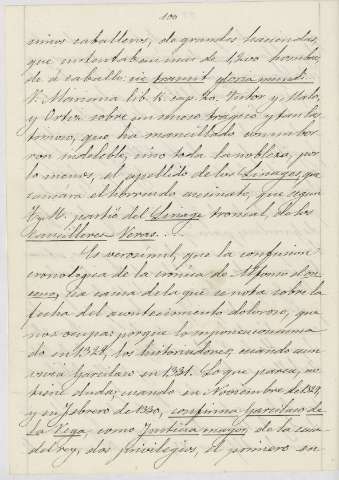 100
nimos caballeros, de grandes haciendas,
que sustentaban mas de 1200 hombres
de á caballo sic transit gloria mundi.
V. Mariana lib. 15 cap. 20. Tutor y Malo,
y Ortiz sobre un suceso trágico y tan las
timoso, que ha mancillado con un bor
ron indeleble, sino toda la nobleza, por
lo menos, el apellido de los Linages, que
causára el horrendo asesinato, que segun
T. y M. partió del Linage troncal, de los
Chancilleres Veras.
Es verosímil, que la confusion
cronológica de la crónica de Alfonso el on
ceno, sea causa de la que se nota sobre la
fecha del acontecimiento doloroso, que
nos ocupa; porque lo suponen consuma
do en 1328, los historiadores, cuando aun
vivia Garcilaso en 1331. Lo que parece, no
tiene duda; cuando en Noviembre de 1329,
y en Febrero de 1330, confirma Garcilaso de
la Vega, como Justicia mayor, de la casa
del rey, dos privilegios, el primero en